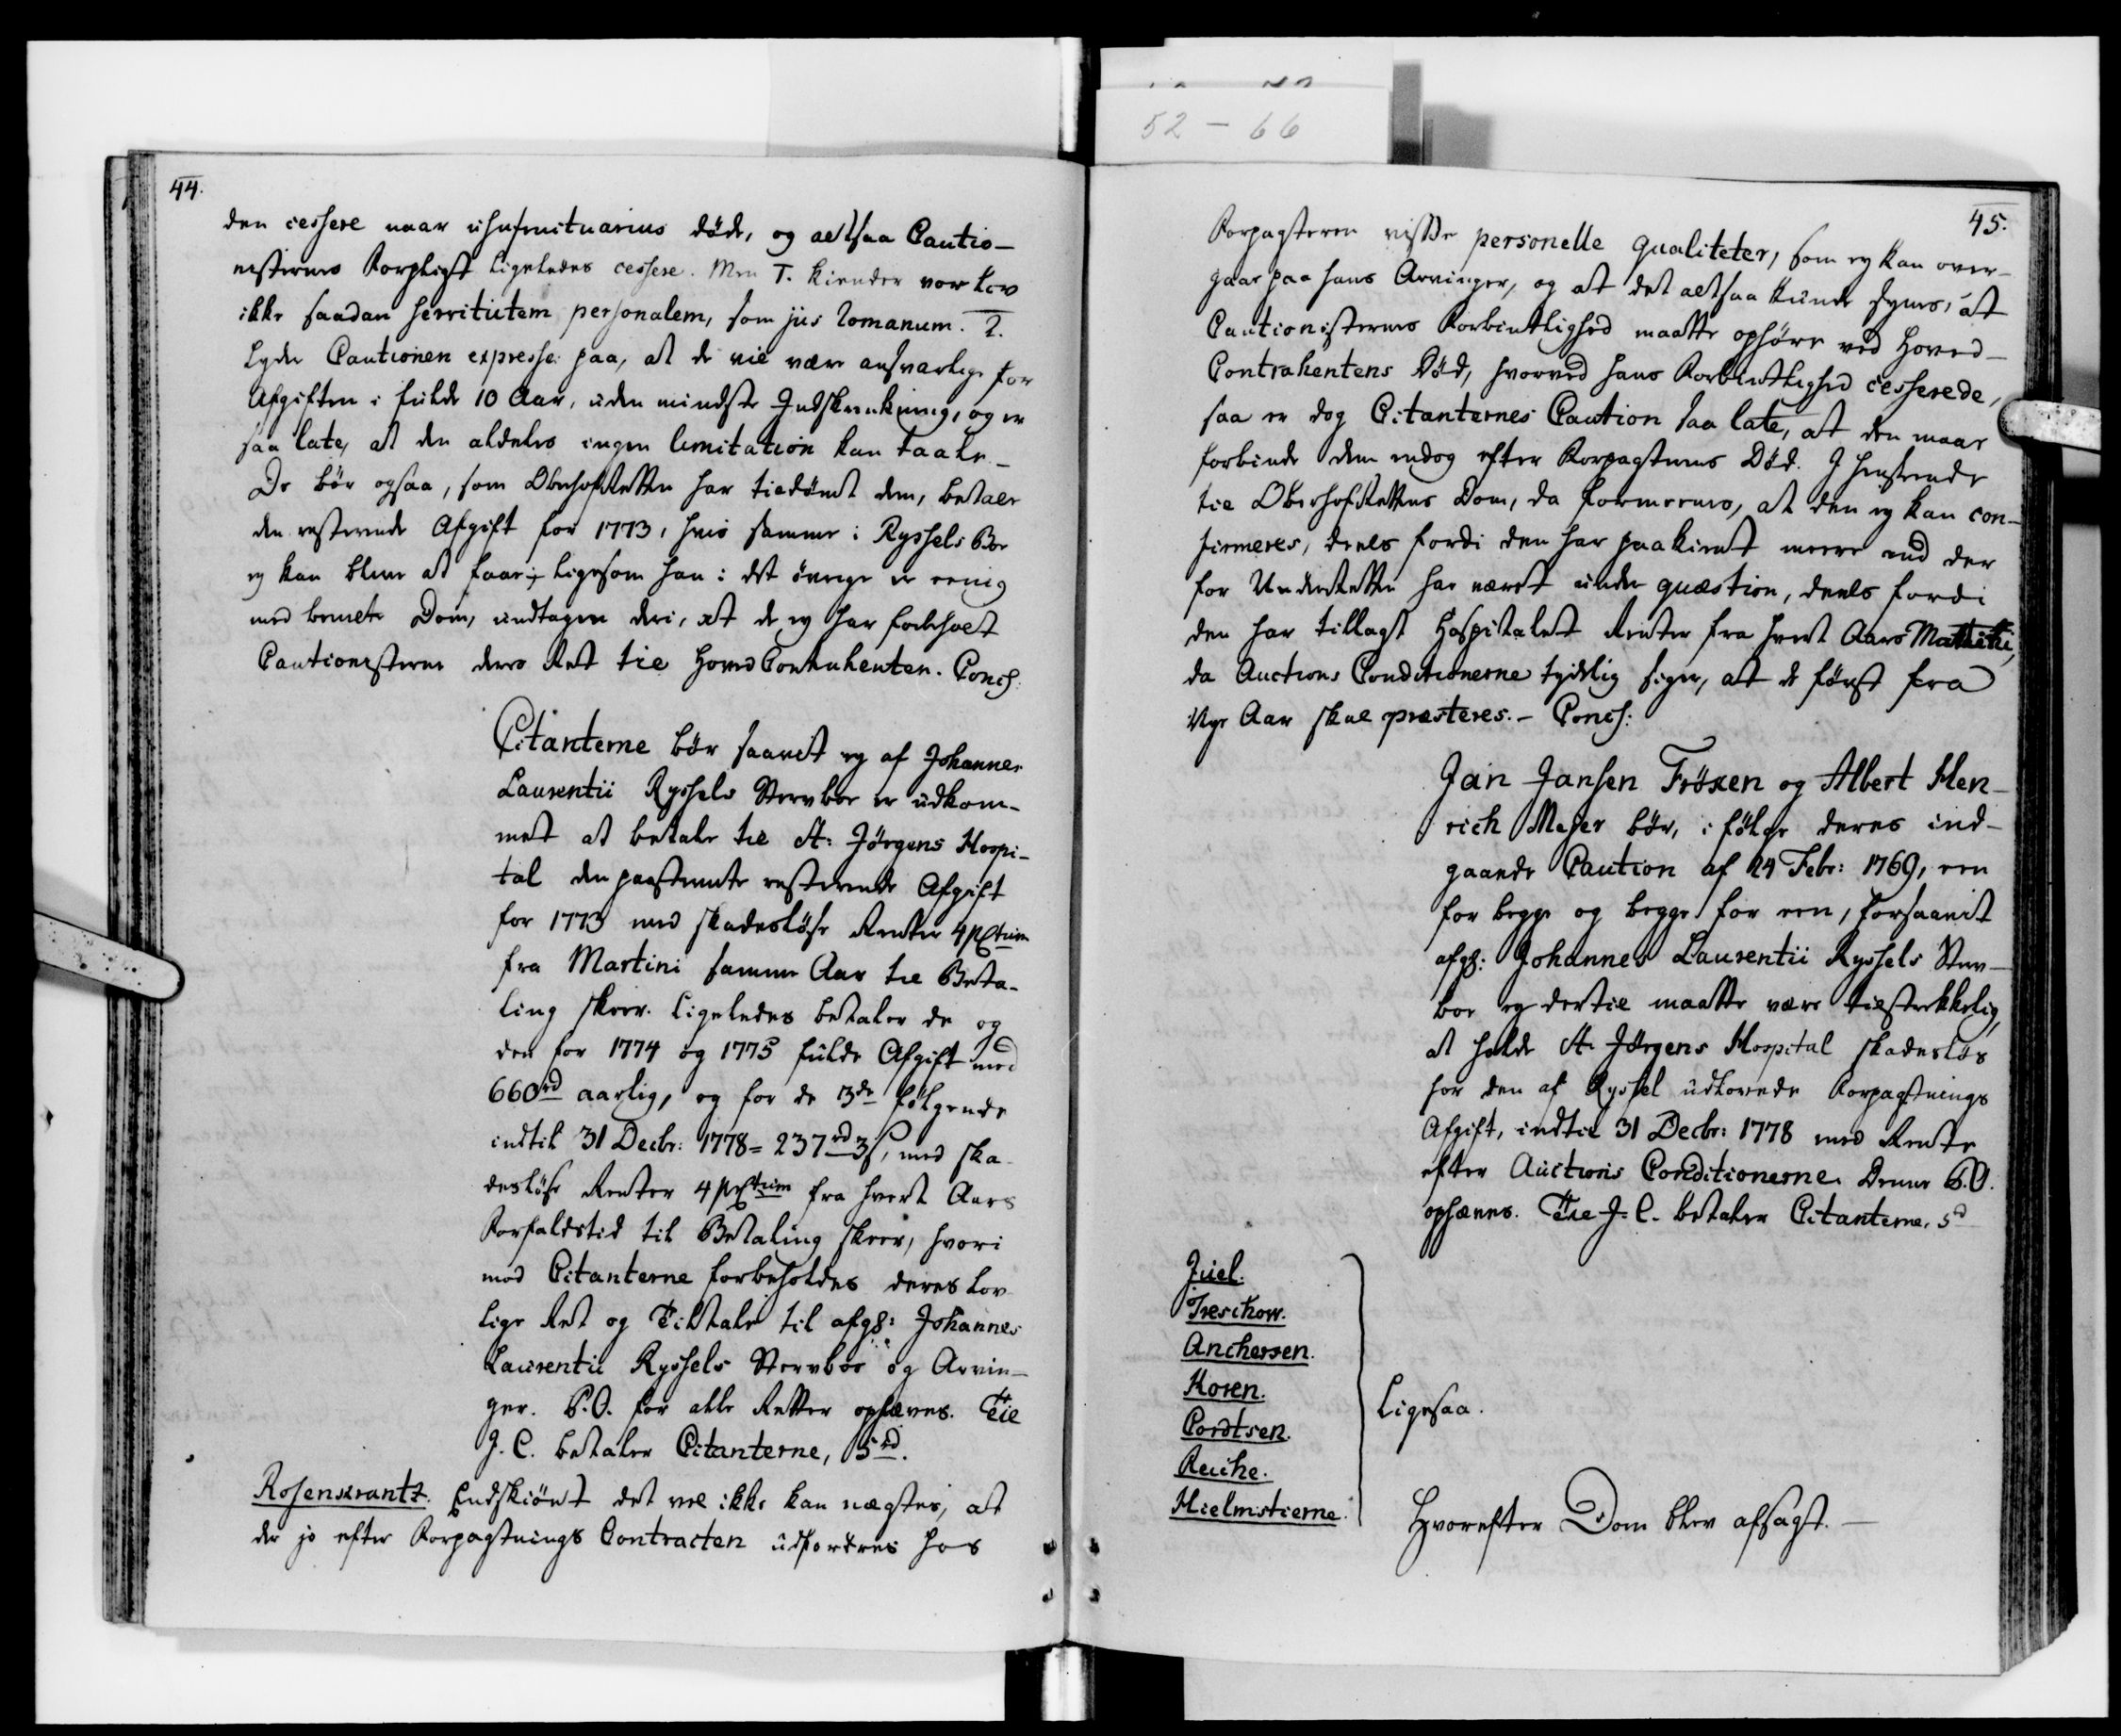 52 - 66
44.
den cessere naar usufructuarius døde, og altsaa Cautio-
nisternes Forpligt ligeledes cessere. Men 1. kiender vor Lov
ikke saadan servitutem personalem, som jus Romanum. 2.
lyder Cautionen expresse paa, at de vil være ansvarlige for
Afgiften i fulde 10 Aar, uden mindste Indskrænkning, og er
saa late, at den aldeles ingen limitation kan taale.
De bør ogsaa, som OberhofRetten har tildømt dem, betale
den resterende Afgift for 1773, hvis samme i Ryssels Boe
ey kan blive at faae; ligesom han i det øvrige er eenig
med bemelte Dom, undtagen deri, at de ey har forbeholt
Cautionisterne deres Ret til HovedContrahenten. Concl:
Citanterne bør saavidt ey af Johannes
Laurentii Ryssels Stervboe er udkom-
met at betale til St: Jørgens Hospi-
tal den paastævnte resterende Afgift
for 1773 med skadesløse Renter 4 prCtum
fra Martini samme Aar til Beta-
ling skeer. Ligeledes betaler de og
den for 1774 og 1775 fulde Afgift med
660 rd aarlig, og for de 3de følgende
indtil 31 Decbr: 1778 = 237 rd 3 s, med ska-
desløse Renter 4 prCtum fra hvert Aars
Forfaldstid til Betaling skeer, hvori-
mod Citanterne forbeholdes deres lov-
lige Ret og Tiltale til afg: Johannes
Laurentii Ryssels Stervboe og Arvin-
ger. P.O. for alle Retter ophæves. Til
J. C. betaler Citanterne, 5 rd.
Rosenkrantz. Endskiønt det vel ikke kan nægtes, at
der jo efter Forpagtnings Contracten udfordres hos
45.
Forpagteren visse personelle qualiteter, som ey kan over-
gaae paa hans Arvinger, og at det altsaa kunde synes, at
Cautionisternes Forbindtlighed maatte ophøre ved Hoved-
Contrahentens Død, hvorved hans Forbindtlighed cesserede,
saa er dog Citanternes Caution saa late, at den maae
forbinde dem endog efter Forpagterens Død. I henseende
til OberhofRettens Dom, da formeenes, at den ey kan con-
firmeres, deels fordi den har paakiendt meere end der
for UnderRetten har været under quæstion, deels fordi
den har tillagt Hospitalet Renter fra hvert Aars
da Auctions Conditionerne tydelig siger, at de først fra
Nye Aar skal præsteres. - Concl:
Jan Jansen Fröxen og Albert Hen-
rich Meyer bør, i følge deres ind-
gaaende Caution af 24 Febr: 1769, een
for begge og begge for een, forsaavidt
afg: Johannes Laurentii Ryssels Sterv-
boe ey dertil maatte være tilstrekkelig,
at holde St. Jørgens Hospital skadesløs
for den af Ryssel udlovede Forpagtnings
Afgift, indtil 31 Decbr: 1778 med Rente
efter Auctions Conditionerne. Denne P.O.
ophæves. Til J. C. betaler Citanterne, 5 rd
Juel.
Treschow.
Anchersen.
Koren.
Cordtsen.
Reiche.
Hielmstierne.
Ligesaa.
Hvorefter Dom blev afsagt. -